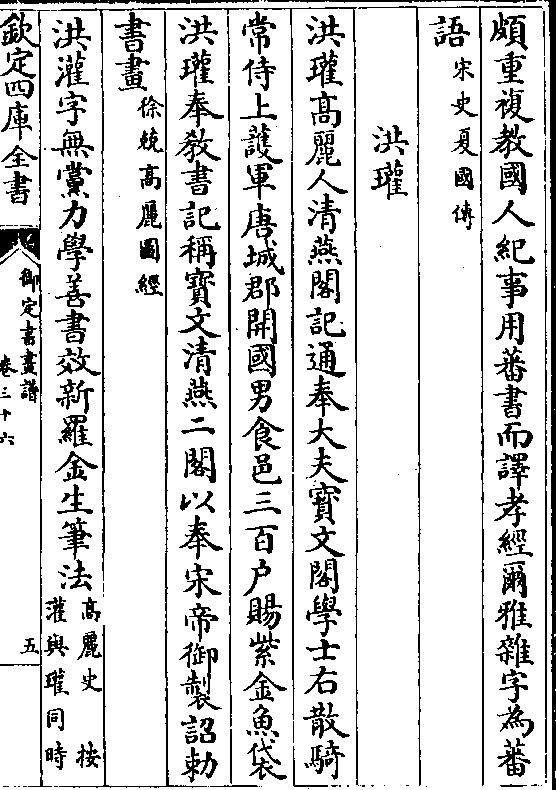 頗重複教國人紀事用蕃書而譯孝經爾雅雜字為蕃
語宋史夏國傳
洪瓘
洪瓘高麗人清燕閣記通奉大夫寶文閣學士右散騎
常侍上護軍唐城郡開國男食邑三百户賜紫金魚袋
洪瓘奉教書記稱寶文清燕二閣以奉宋帝御製詔勅
書畫徐兢高麗圖經
洪灌字無黨力學善書效新羅金生筆法高麗史 按
灌與瓘同時
欽定四庫全書
御定書畫譜
卷三十六
五